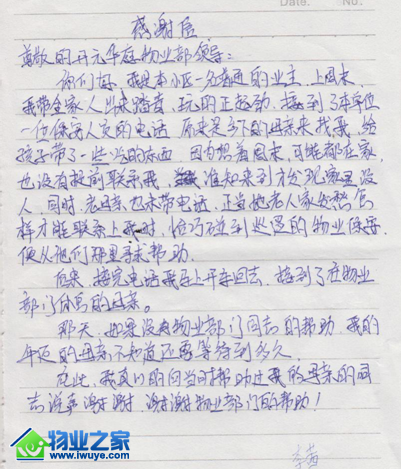 Date. No.
感谢信
尊敬的开元华庭物业部领导:
你们好,我是本小区一名普通的业主,上周末,
我带全家人出来踏青,玩的正起劲,接到了本单位
一位保安人员的电话,原来是乡下的母亲来找我,给
孩子带了一些吃的东西,因为想着周末,可能都在家,
也没有提前联系我,谁知来到才发现家里没
人,同时,老母亲也未带电话,正当她老人家发愁怎
样才能联系上我时,恰巧碰到巡逻的物业保安,
便从他们那里寻求帮助。
后来,接完电话我马上开车回去,接到了在物业
部门休息的母亲。
那天,如果没有物业部门同志的帮助,我的
年迈的母亲不知道还要等待到多久。
在此,我真心的向当时帮助过我的母亲的同
志说声谢谢,谢谢物业部门的帮助!
物业之家
www.iwuye.com